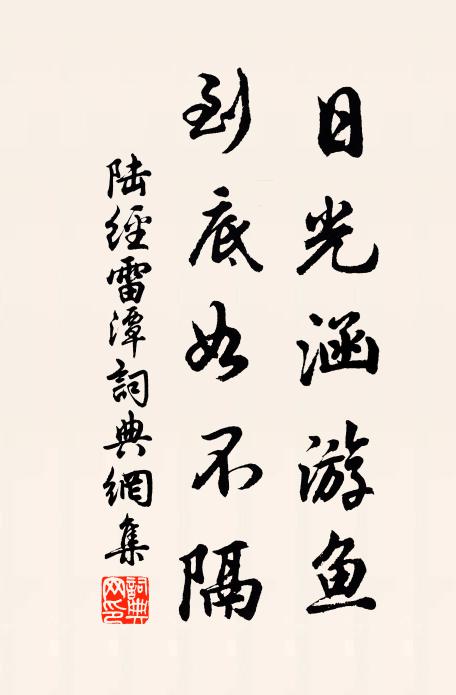 日光涵游鱼
到底如不隔
陆經雷潭詞典網集
詞典网印